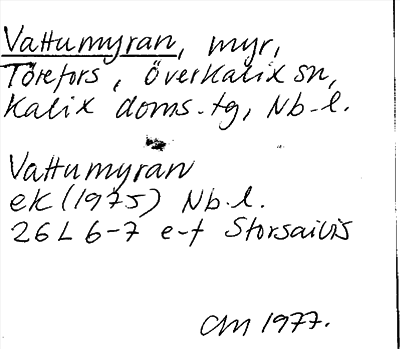 Vattumyran, myr,
Törefors, Överkalix sn,
Kalix doms.tg, Nb.l.
Vattumyran
ek (1975) Nb.l.
26L 6-7 e-f Storsaivis
CM 1977.